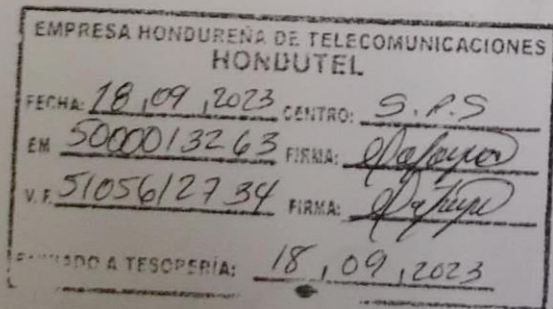 EMPRESA HONDUREÑA DE TELECOMUNICACIONES
HONDUTEL
FECHA: 18,09,2023 CENTRO: S.P.S
EM 5000013263 FIRMA:
V.F. 5105612734 FIRMA:
A TESORERÍA: 18,09,2023